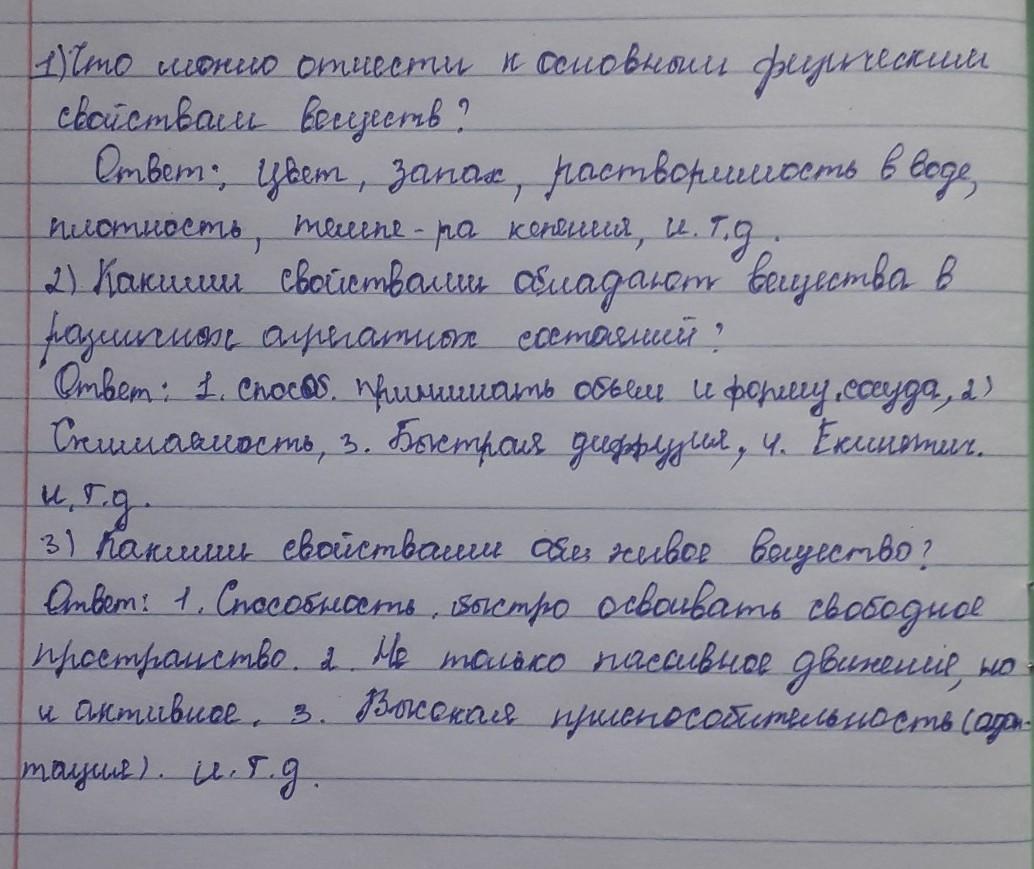 1) Что можно отнести к основным физическим
свойствам веществ?
Ответ: цвет, запах, растворимость в воде,
плотность, темпе-ра кепения, и.т.д.
2) Какими свойствами обладают вещества в
различных агрегатных состояний?
Ответ: 1. способ. принимать объем и форму сосуда, 2)
Сжимаемость, 3. Быстрая диффузия, 4.
и.т.д.
3) Какими свойствами живое вещество?
Ответ: 1. Способность быстро осваивать свободное
пространство. 2. Не только пассивное движение, но
и активное. 3. Высокая приспособительность (адап-
тация). и.т.д.